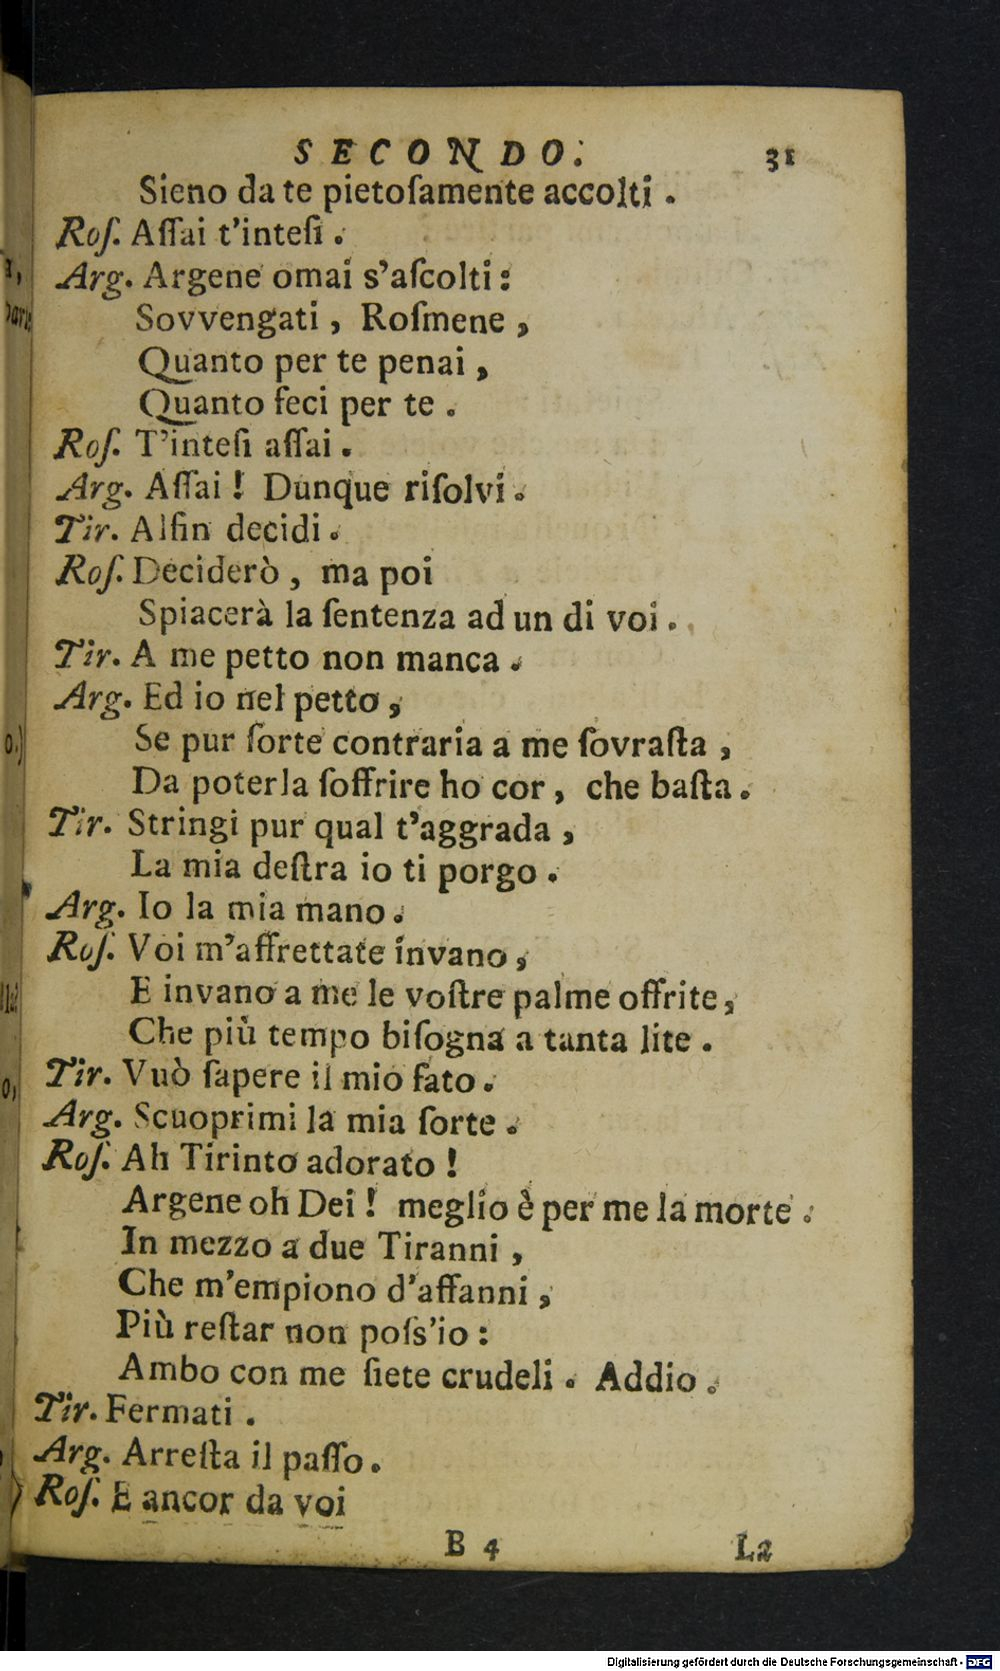 SECONDO. 31
Sieno da te pietoſamente accolti.
Roſ. Aſſai t'inteſi.
Arg. Argene omai s'aſcolti:
Sovvengati, Roſmene,
Quanto per te penai,
Quanto feci per te.
Roſ. T'inteſi aſſai.
Arg. Aſſai! Dunque riſolvi.
Tir. Alfin decidi.
Roſ. Deciderò, ma poi
Spiacerà la ſentenza ad un di voi.
Tir. A me petto non manca.
Arg. Ed io nel petto,
Se pur ſorte contraria a me ſovraſta,
Da poterla ſoffrire ho cor, che baſta.
Tir. Stringi pur qual t'aggrada,
La mia deſtra io ti porgo.
Arg. Io la mia mano.
Roſ. Voi m'affrettate invano,
E invano a me le voſtre palme offrite,
Che più tempo biſogna a tanta lite.
Tir. Vuò ſapere il mio fato.
Arg. Scuoprimi la mia ſorte.
Roſ. Ah Tirinto adorato!
Argene oh Dei! meglio è per me la morte.
In mezzo a due Tiranni,
Che m'empiono d'affanni,
Più reſtar non poſs'io:
Ambo con me ſiete crudeli. Addio.
Tir. Fermati.
Arg. Arreſta il paſſo.
Roſ. E ancor da voi
B 4 La
Digitalisierung gefördert durch die Deutsche Forschungsgemeinschaft - DFG